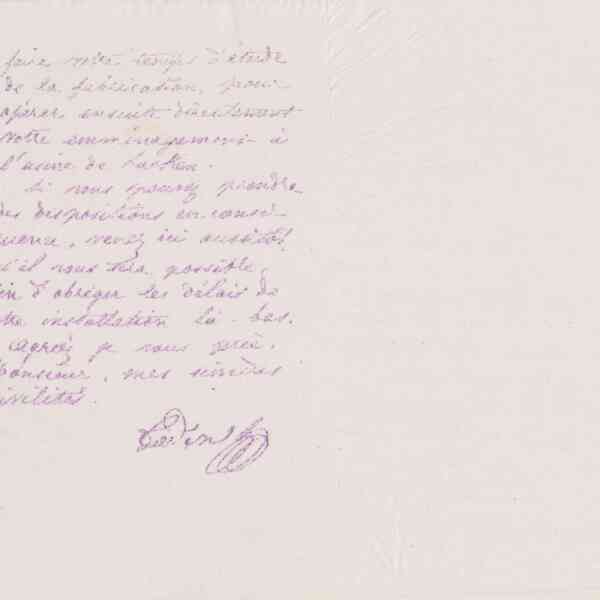 faire votre temps d'étude
de la fabrication, pour
opérer ensuite directement
votre emménagement à
l'usine de Laeken.
Si vous pouvez prendre
des dispositions en consé-
quence, venez ici aussitôt
qu'il vous sera possible,
in d'abréger les délais de
tre installation là-bas.
agréez je vous prie,
Monsieur, mes sincères
ivilités.
Godin